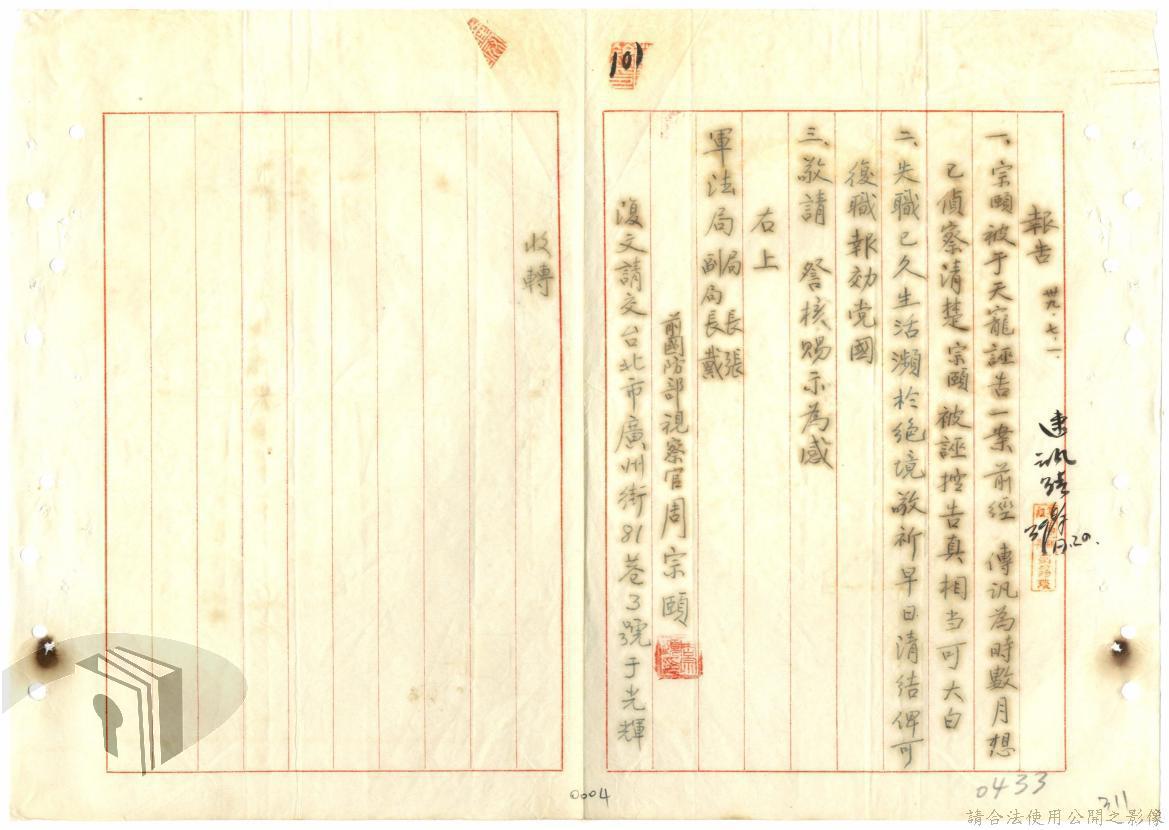 報告 卅九．七．一．
一、宗頤被于天寵誣告一案前經 傳汎為時數月想
已偵察清楚宗頤被誣控告真相当可大白
二、失職已久生活瀕於絕境敬祈早日清結俾可
復職報効党國
三、敬請 詧核賜示為感
右上
軍法局 局長張
副局長戴
前國防部視察官周宗頤
復文請交台北市廣州街81巷3號于光輝
收轉
101
0433
311
0004
請合法使用公開之影像